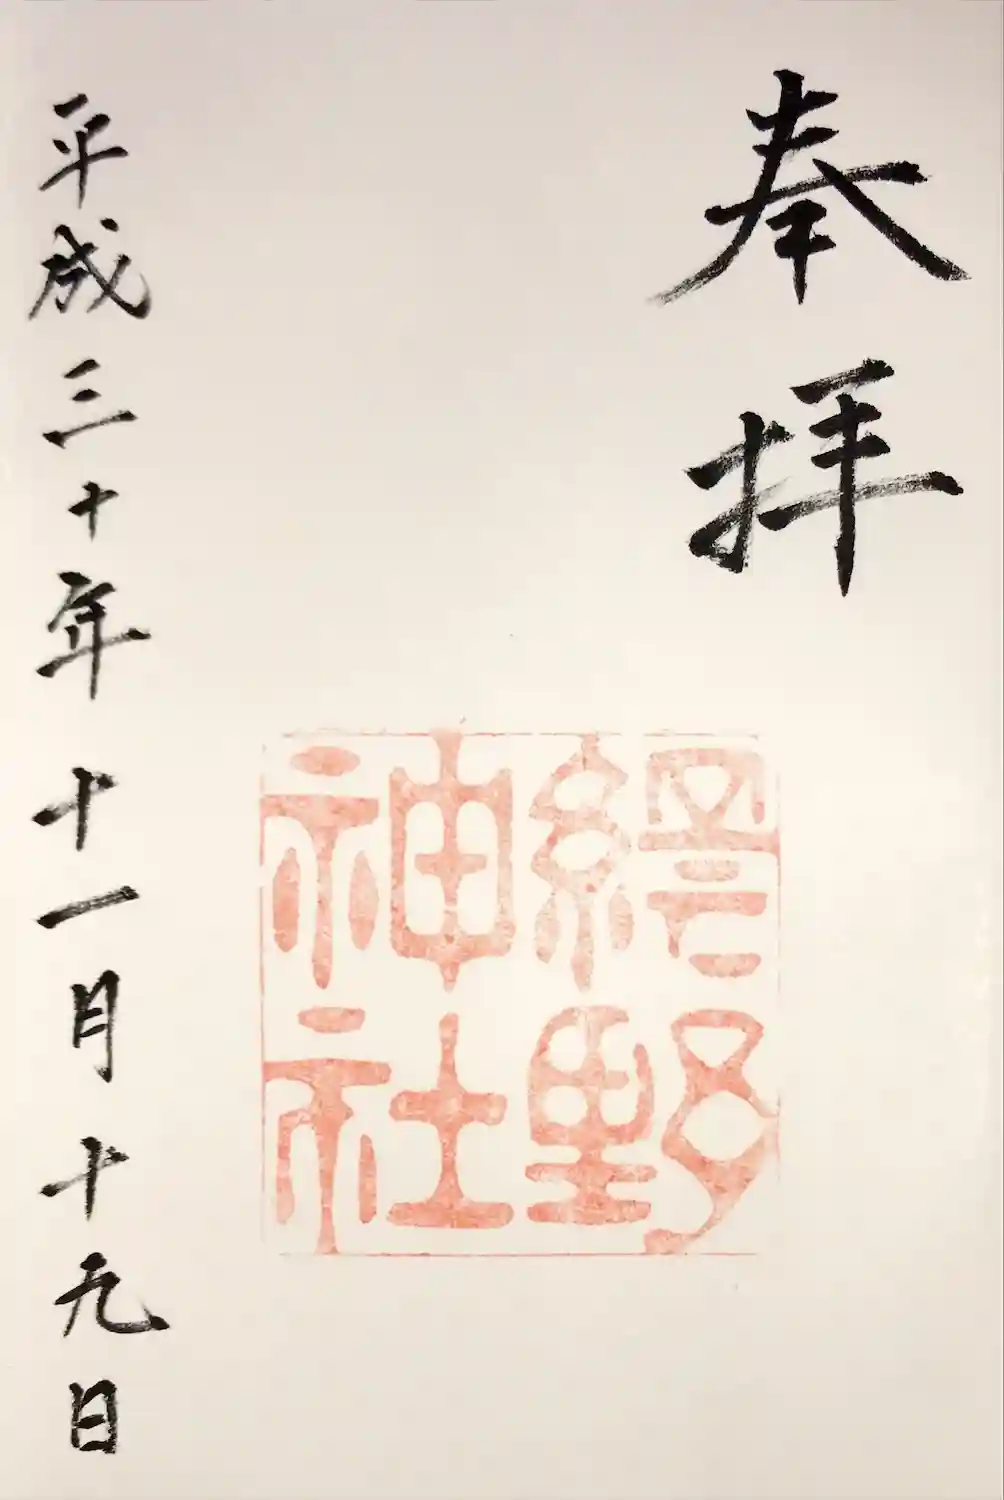 奉拝
網野神社
平成三十年十一月十九日